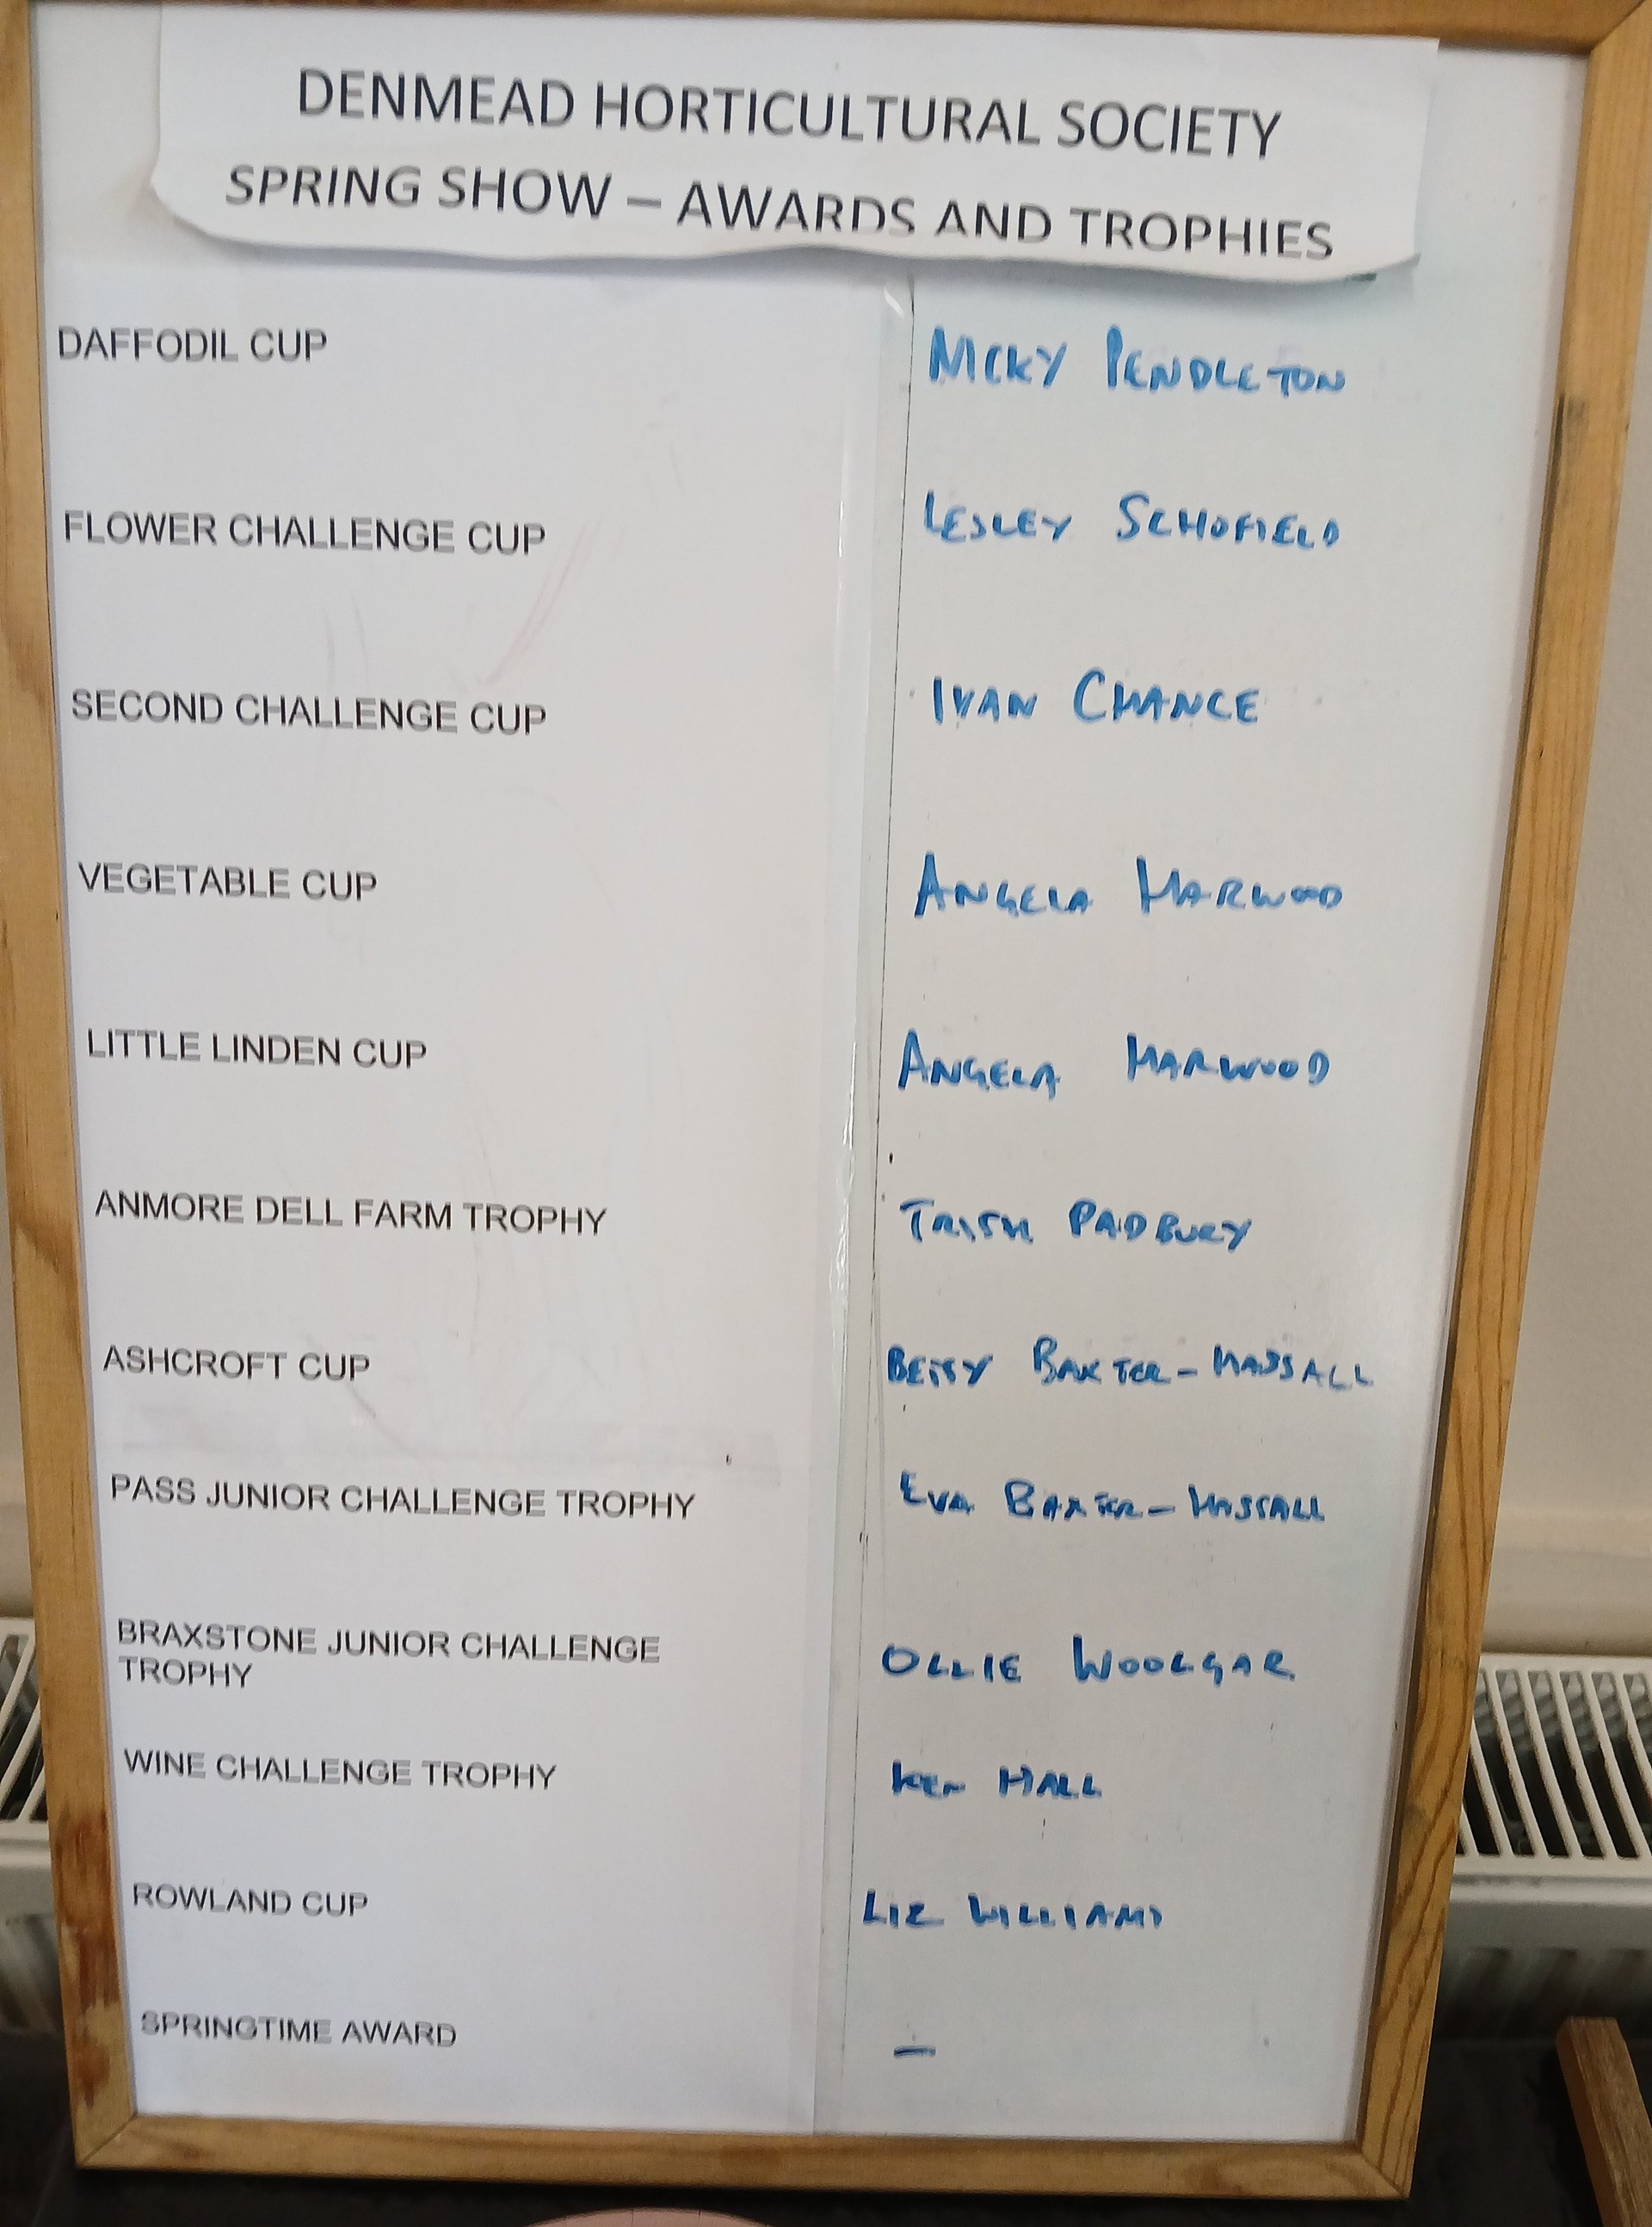 DENMEAD HORTICULTURAL SOCIETY
SPRING SHOW – AWARDS AND TROPHIES
DAFFODIL CUP NICKY PENDLETON
FLOWER CHALLENGE CUP LESLEY SCHOFIELD
SECOND CHALLENGE CUP IVAN CHANCE
VEGETABLE CUP ANGELA HARWOOD
LITTLE LINDEN CUP ANGELA HARWOOD
ANMORE DELL FARM TROPHY TRISH PADBURY
ASHCROFT CUP BETSY BAXTER-HASSALL
PASS JUNIOR CHALLENGE TROPHY EVA BAXTER-HASSALL
BRAXSTONE JUNIOR CHALLENGE
TROPHY OLLIE WOOLGAR
WINE CHALLENGE TROPHY KEN HALL
ROWLAND CUP LIZ WILLIAMS
SPRINGTIME AWARD –